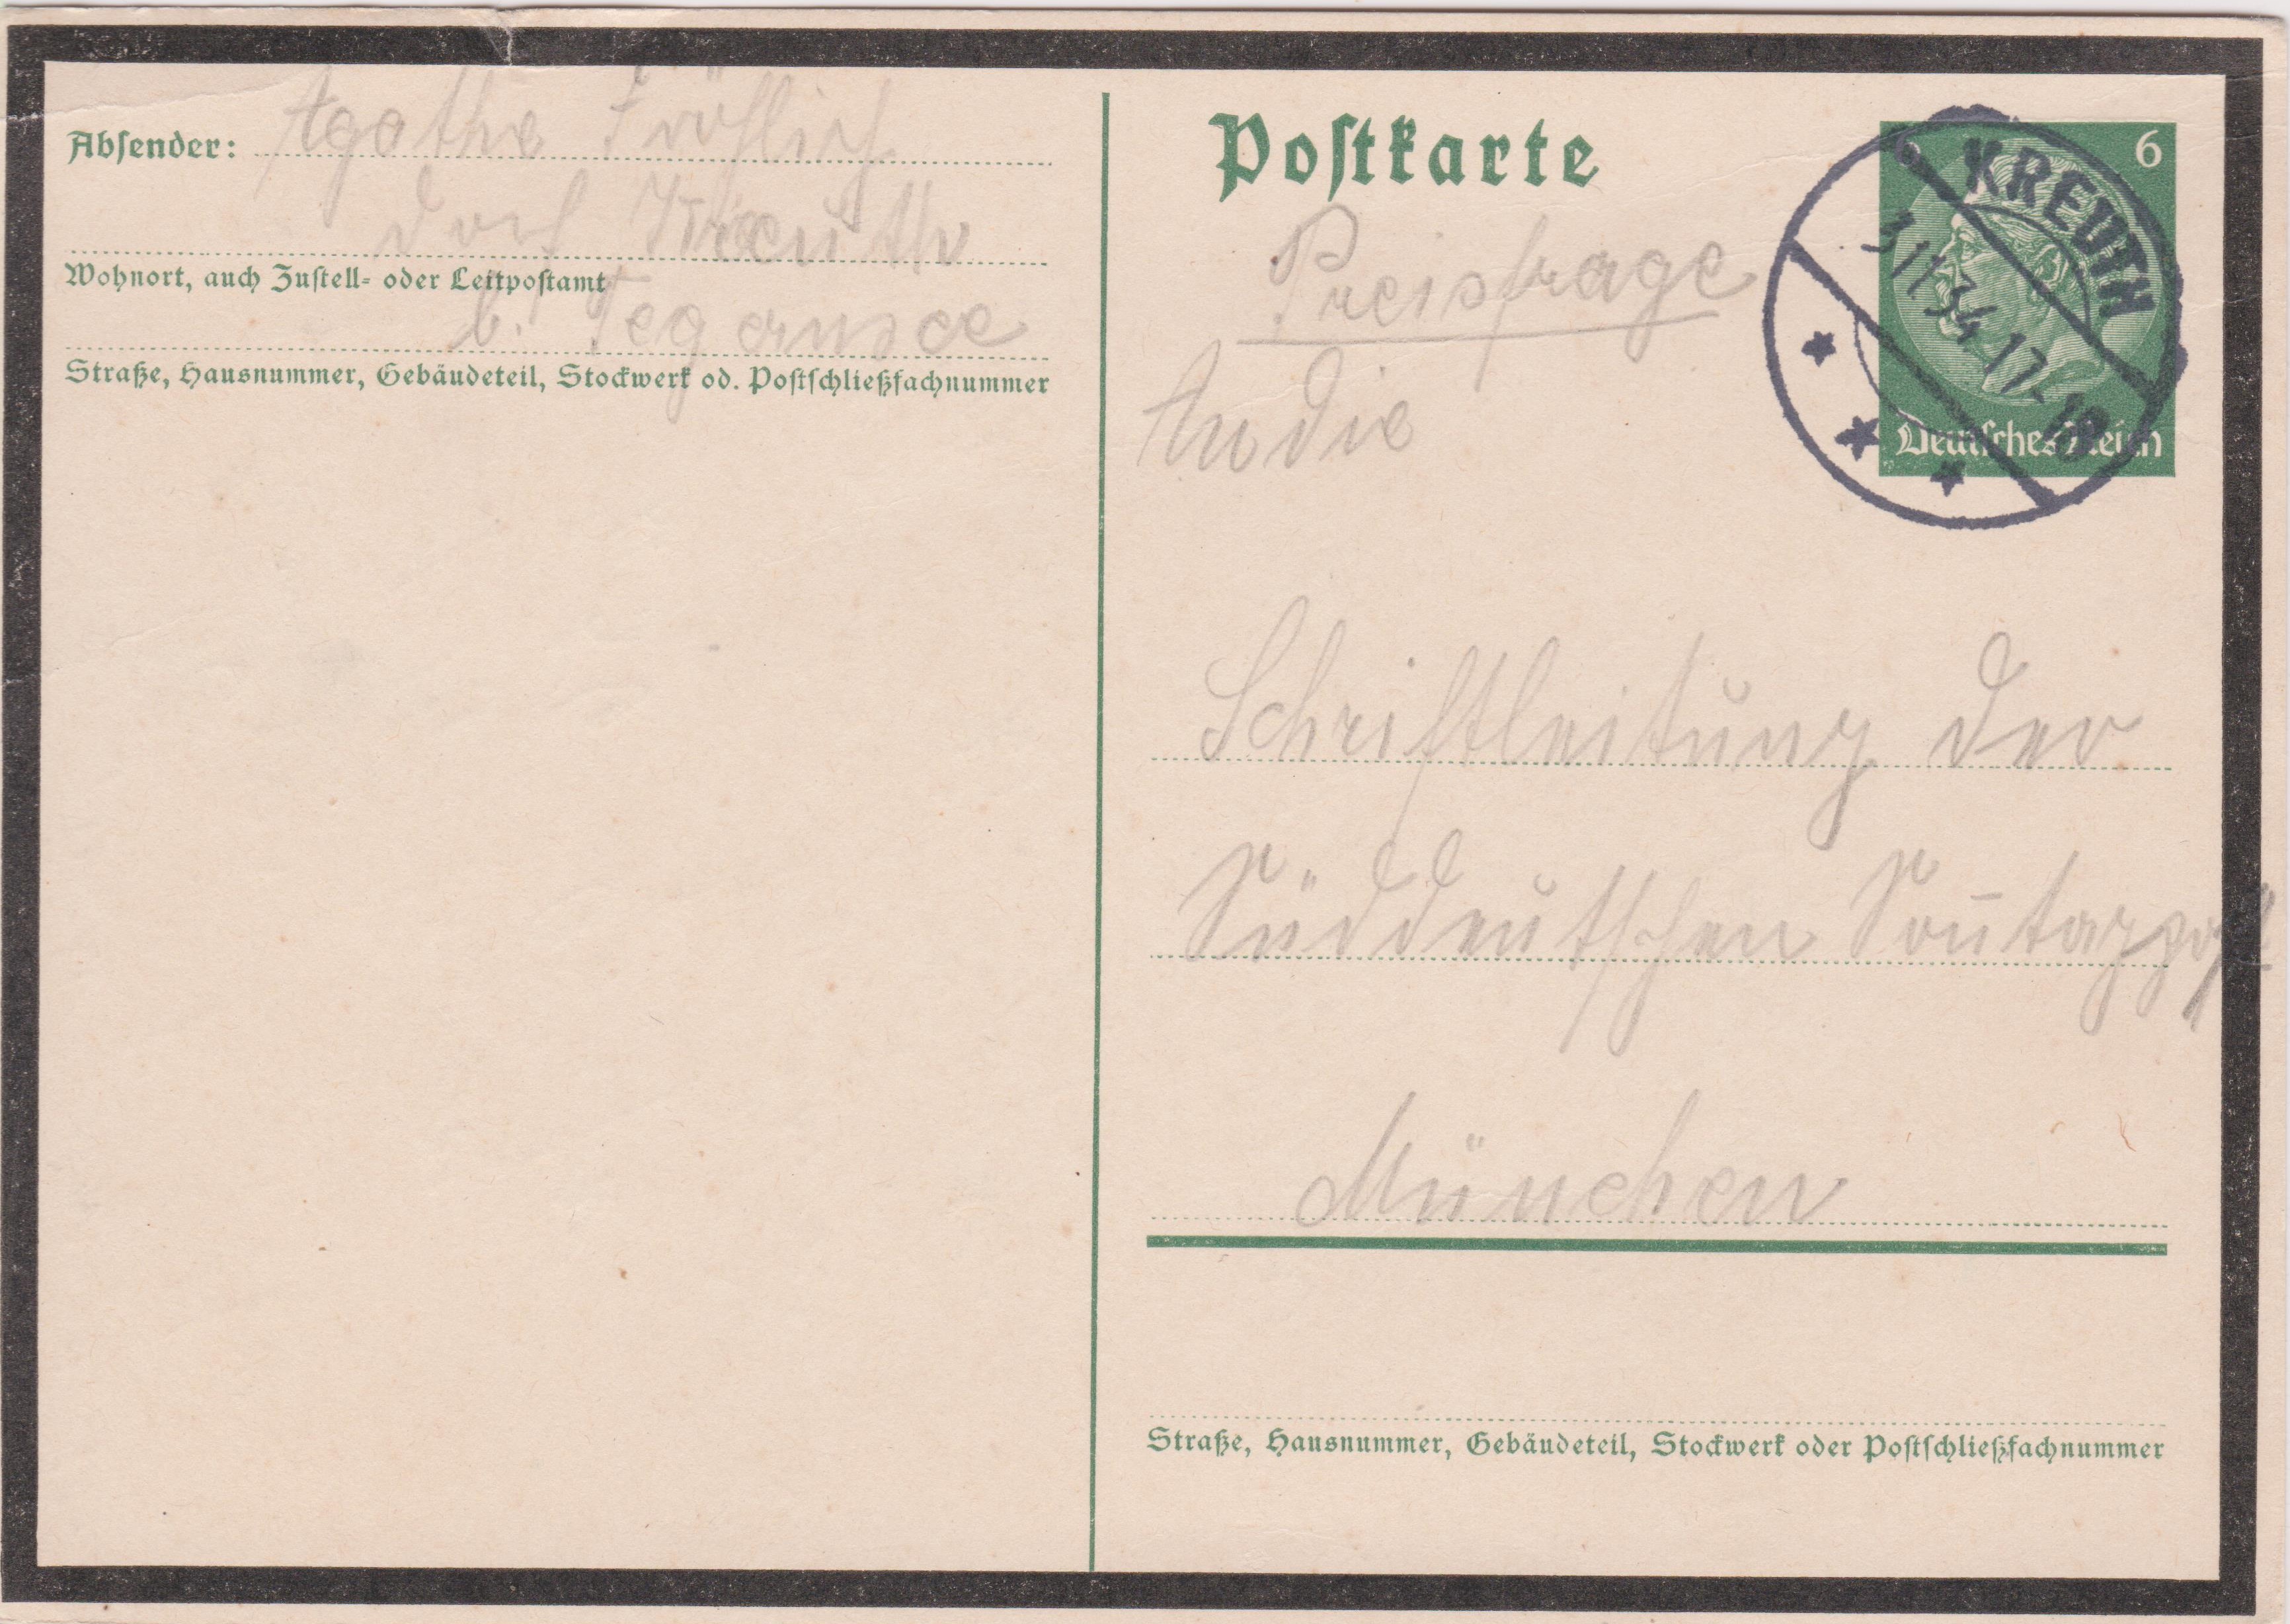 Absender: Agathe Fröhlich
dorf Kreuth
Wohnort, auch Zustell- oder Leitpostamt
b. Tegernsee
Straße, Hausnummer, Gebäudeteil, Stockwerk od. Postschließfachnummer
Postkarte
6
KREUTH
3 11 34 17-18
Deutsches Reich
Preisfrage
An die
Schriftleitung der
Süddeutschen
München
Straße, Hausnummer, Gebäudeteil, Stockwerk oder Postschließfachnummer